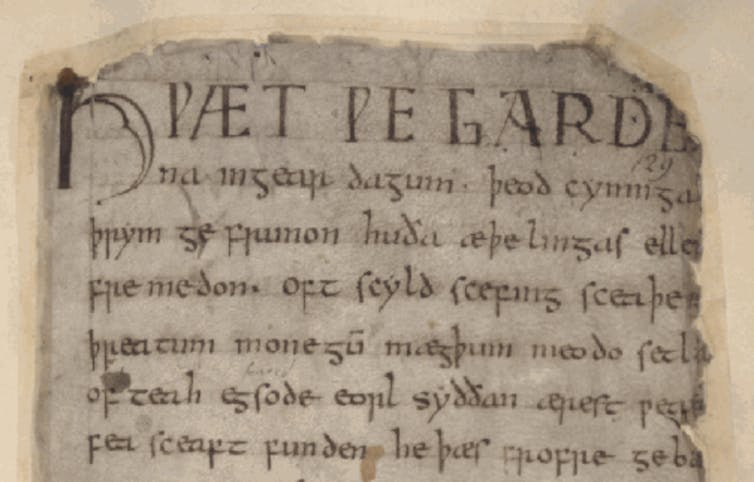 HǷÆT ǷE GARDE
na ingear dagum. þeod cyninga
þrym ge frunon huða æþelingas elle
fremedon. oft scyld scefing sceaþe
þreatum monegū mægþum meodo setla
of teah egsode eorl syððan ærest ƿear
fea sceaft funden he þæs frofre geba
129